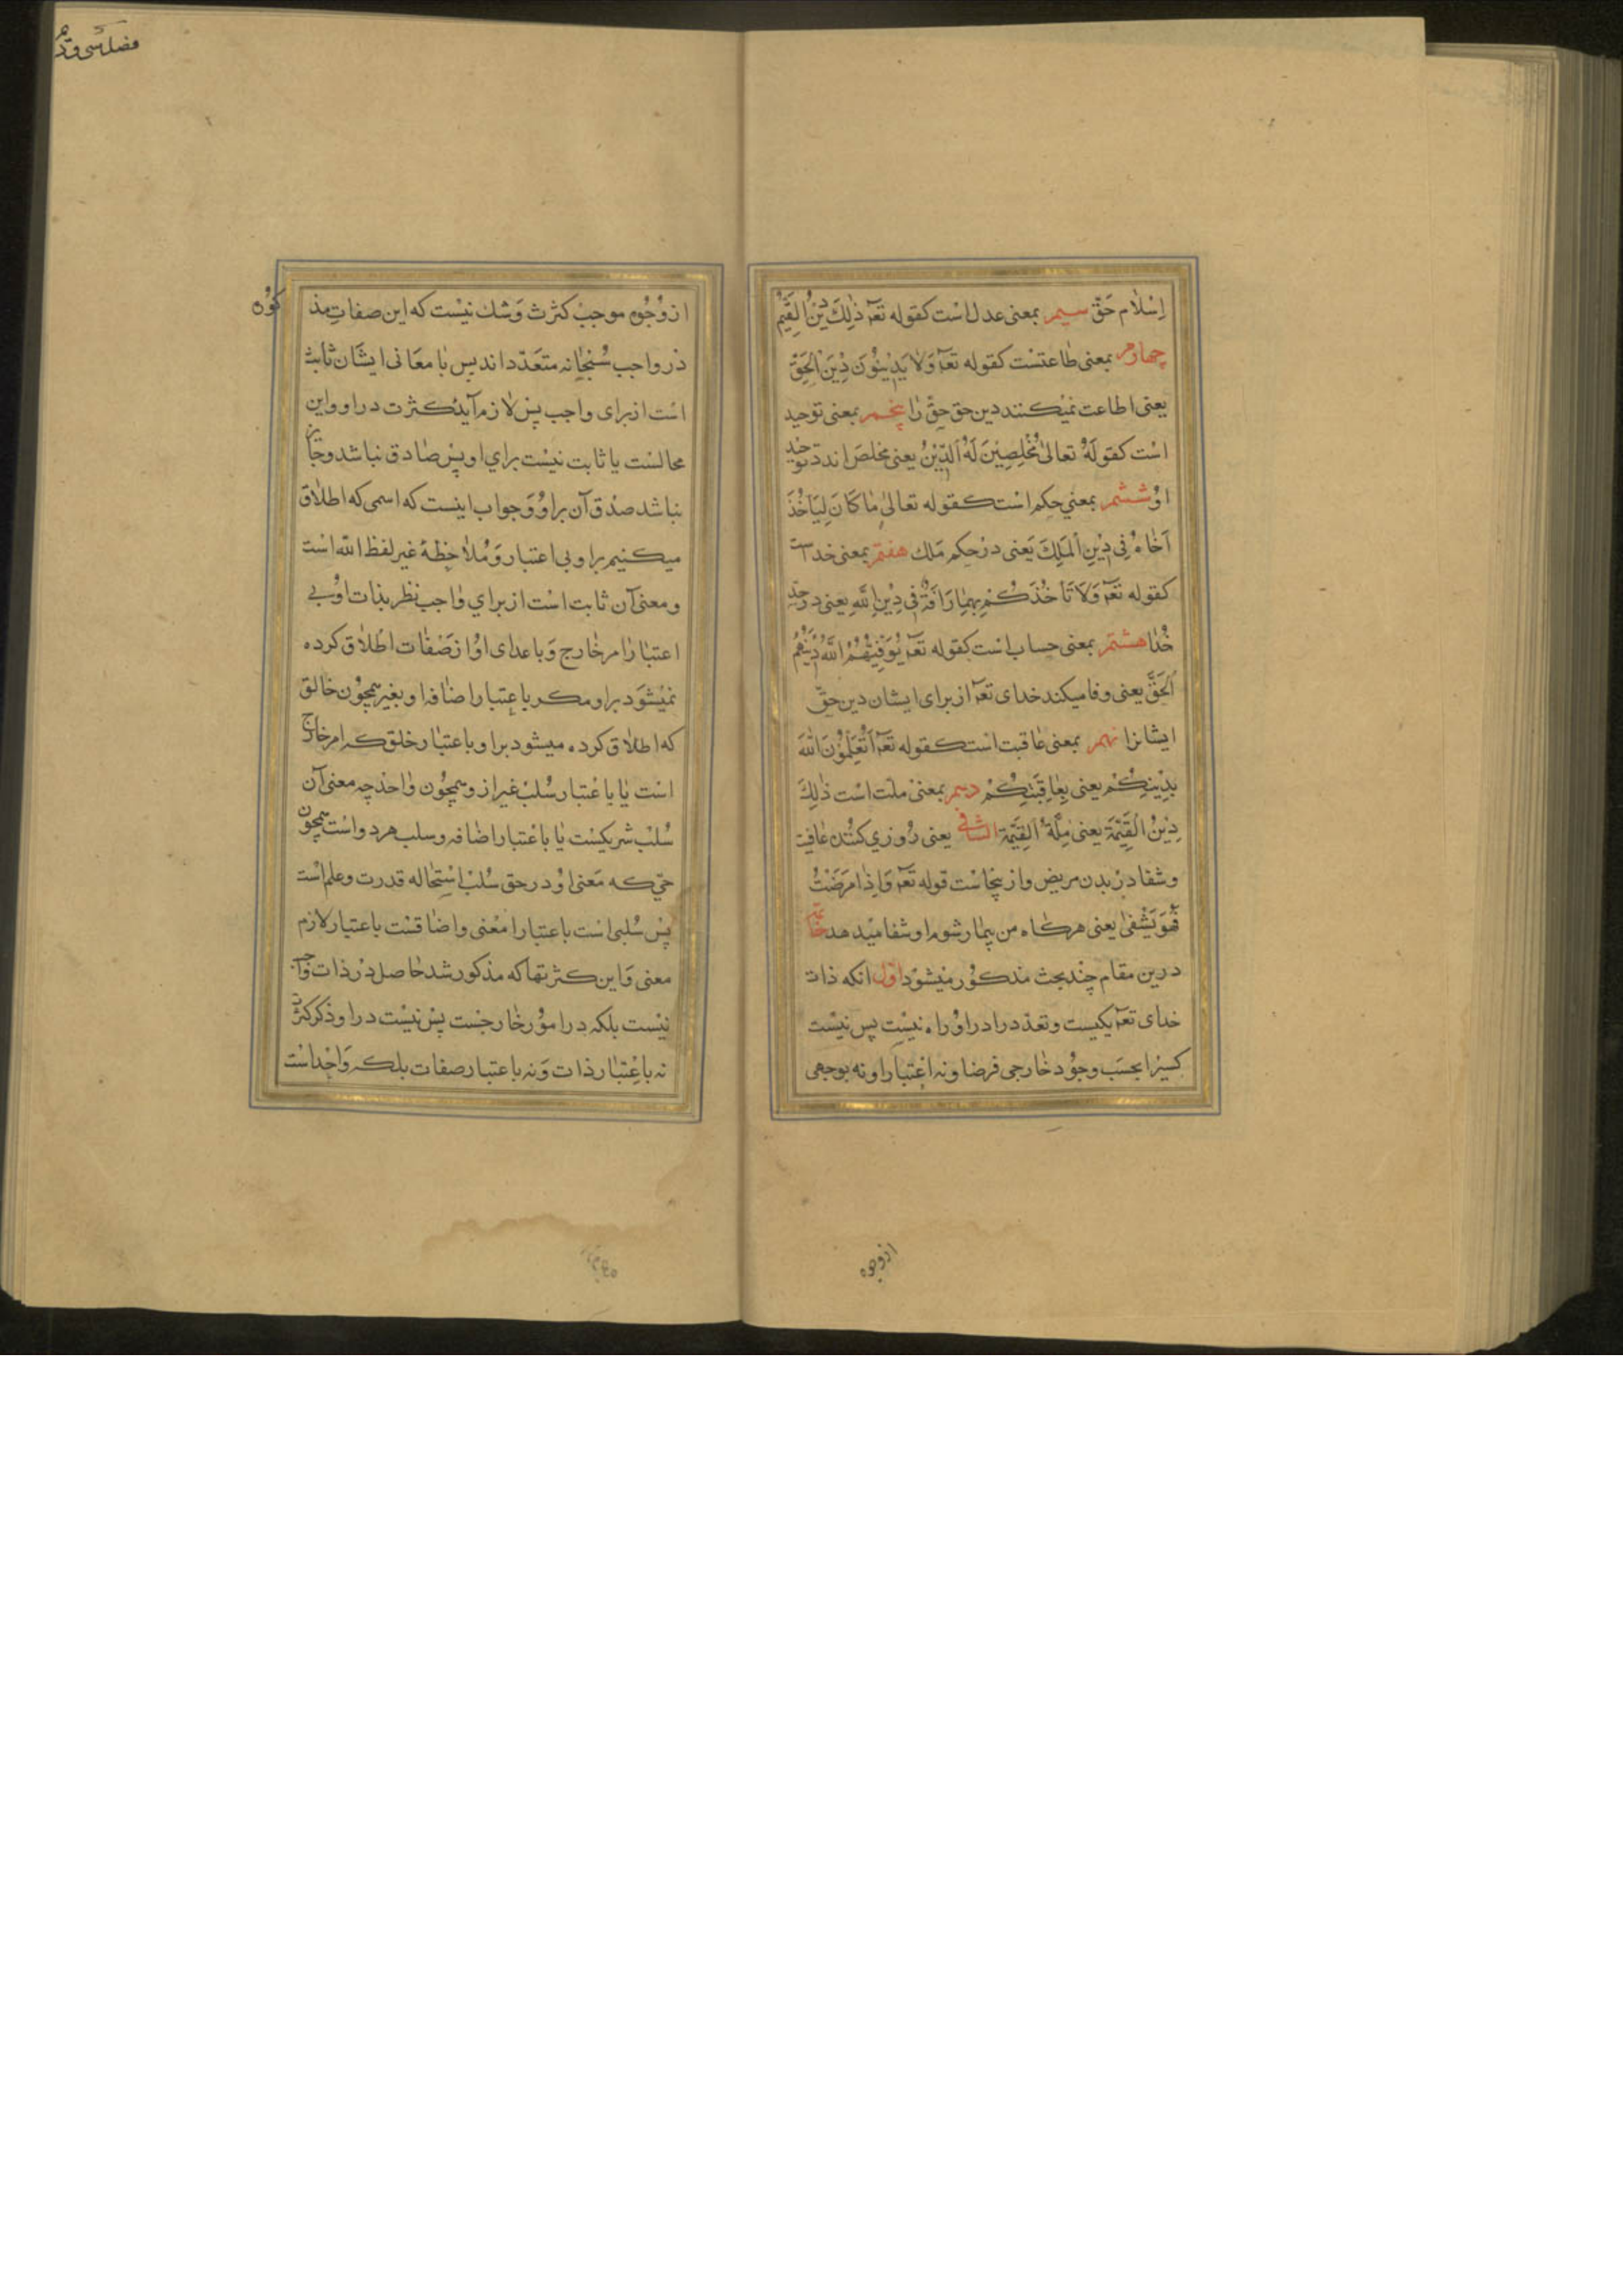 اِسْلام حَقّ سیم بمعنی عدل است کقوله تعه ذٰلِكَ دِیْنُ الْقَیِّمُ
چهارم بمعنی طاعتست کقوله تعه وَلا یَدِیْنُوْنَ دِیْنَ الْحَقِّ
یعنی اطاعت نمیکنند دین حق حق را پنجم بمعنی توحید
است کقولهُ تعالیٰ مُخْلِصِیْنَ لَهُ الدِّیْنُ یعنی مخلص اند توحید
اوُ ششم بمعنی حکم است کقوله تعالیٰ مٰا کَانَ لِیَاْخُذَ
اَخٰاهُ فِی دِیْنِ الْمَلِكَ یَعنی در حکم مَلك هفتم بمعنی خداست
کقوله تعه وَلَا تَاْخُذْکُمْ بِهِمٰا رَاْفَةٌ فِی دِیْنِ اللّٰهِ یعنی در
خُدٰا هشتم بمعنی حساب است کقوله تعه یُوَفِّیْهُمُ اللّٰهُ دِیْنَهُمُ
الْحَقَّ یعنی وفا میکند خدای تعه از برای ایشان دین حقّ
ایشانرا نهم بمعنی عٰاقبت است کقوله تعه اَتُعَلِّمُوْنَ اللّٰهَ
بِدِیْنِکُمْ یعنی بِعٰاقِبَتِکُمْ دهم بمعنیْ ملّت است ذٰلِكَ
دِیْنُ الْقَیِّمَة یعنی مِلَّةُ الْقَیِّمَة الشافی یعنی رُوزی کنُنده عٰافیت
وشفا درْ بدن مریض وازینجٰاست قوله تعه وَاِذٰا مَرَضْتُ
فَهُوَ یَشْفٰی یعنی هرکٰاه من بیمٰار شوم او شفا میدهد خاتمه
درین مقام چند بحث مذکوُر میشوْد اوّل انکه ذات
خدای تعه یکیست وتعدّد را در اوُ راه نیسْت پس نیسْت
کسیرا بحسَب وجوُد خٰارجی فرضا ونه اعْتبار او نه بوجهی
ازوجوه
فصل سی و
از وُجُوه موجبْ کثرث وَشك نیسْت که این صفاتِ مذ کوْره
در واجب سُبْحٰانه متعَدّد اند پس بٰا معَانی ایشَان ثابث
است از برای واجب پسْ لٰا زم آید کثرت در او واین
محالسْت یا ثابت نیسْت برای او پسْ صٰادق نباشد وجٰایز
نباشد صدْق آن براوُ وَجواب اینست که اسمی که اطلٰاق
میکنیم براو بی اعتبار وَمُلاحٖظهٔ غیر لفظ اللّٰه است
ومعنی آن ثابت است از برای وٰاجب نظر بذات اوُ بی
اعتبٰار اٰمر خٰارج وَباعدای اوُ از صفٰات اطلٰاق کرده
نمیْشوَد براو مکر باعتبار اضٰافه او بغیر همچوُن خالق
که اطلٰاق کرده میشود براو باعتبٰار خلق که امر خارج
است یٰا باعْتبار سُلبْ غیر از و همچوُن وٰاحد چه معنی آن
سُلبْ شریکیسْت یٰا باعْتبار اضٰافه وسلب هر دواست همچون
حیّ که مَعنی اوُ در حق سُلبْ اسْتِحٰاله قدرت وعلم است
پسْ سُلبی است باعتبار امعْنی واضٰافتسْت باعتبٰار لازم
معنی وَاین کثرتها که مذکور شد حٰاصل درْ ذات واجب
نیسْت بلکه در امُور خٰارجسْت پسْ نیسْت در او ذکر کثرت
نه باعتبٰار ذات وَنه باعتبار صفات بلکه وَاحْداسْت